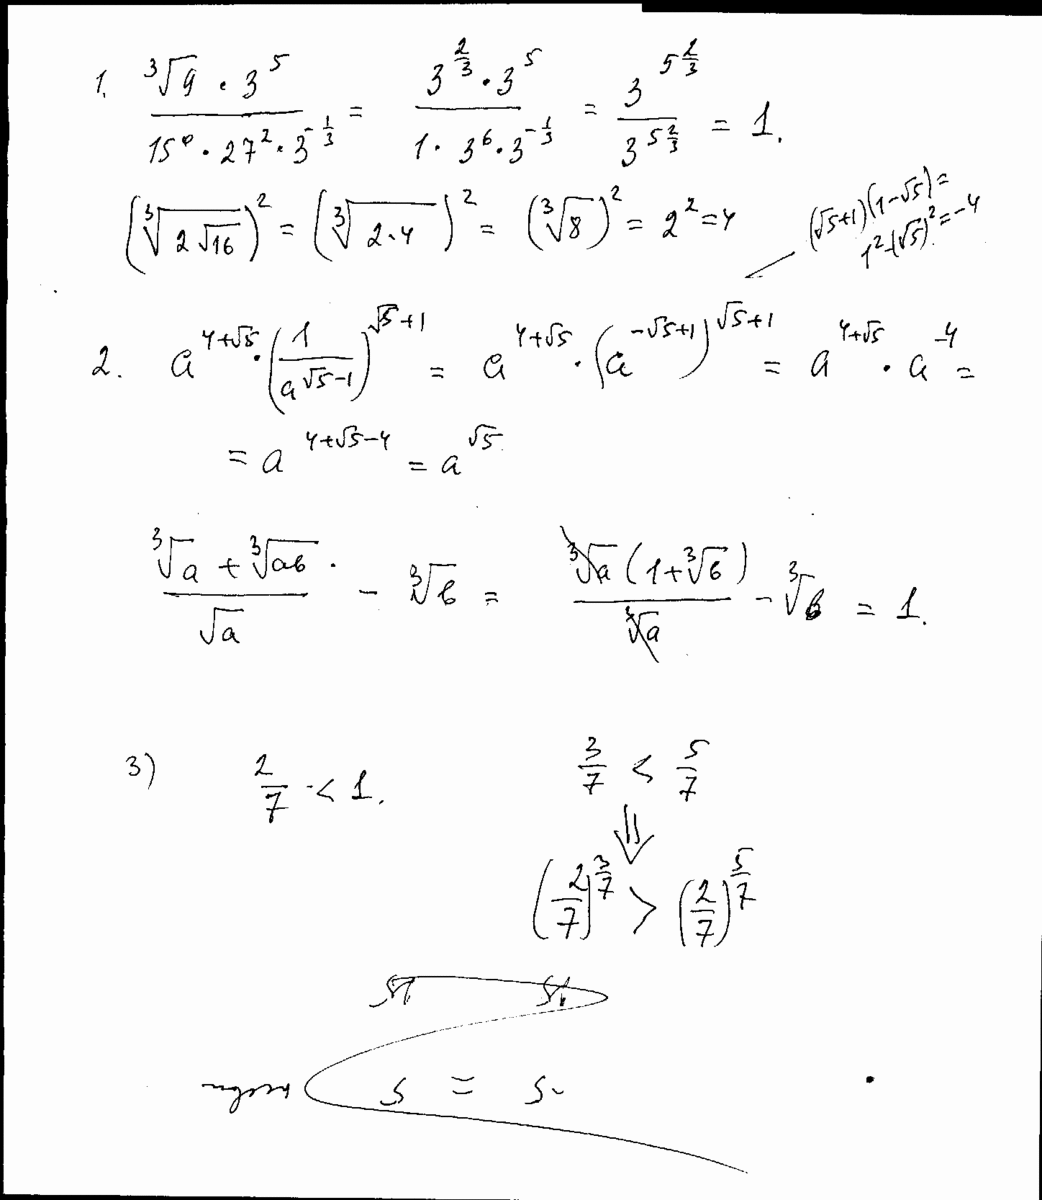 1. ∛9 · 3^5 / (15^0 · 27^2 · 3^(-1/3)) = 3^(2/3) · 3^5 / (1 · 3^6 · 3^(-1/3)) = 3^(5 2/3) / 3^(5 2/3) = 1.
(∛(2√16))^2 = (∛(2·4))^2 = (∛8)^2 = 2^2 = 4
(√5+1)(1-√5) =
1^2-(√5)^2 = -4
2. a^(4+√5) · (1/a^(√5-1))^(√5+1) = a^(4+√5) · (a^(-√5+1))^(√5+1) = a^(4+√5) · a^(-4) =
= a^(4+√5-4) = a^(√5)
(∛a + ∛(ав)) / √a - ∛в = ∛a (1+∛в) / ∛a - ∛в = 1.
3) 2/7 < 1. 3/7 < 5/7
⇓
(2/7)^(3/7) > (2/7)^(5/7)
5 = 5